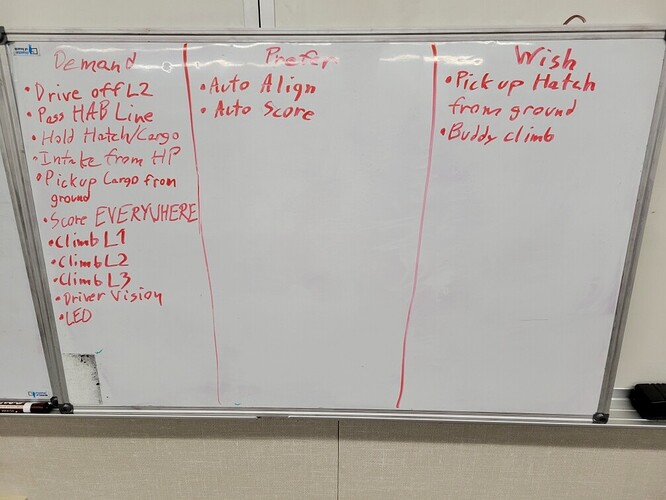 Demand
• Drive off L2
• Pass HAB Line
• Hold Hatch/Cargo
• Intake from HP
• Pickup Cargo from
ground
• Score EVERYWHERE
• Climb L1
• Climb L2
• Climb L3
• Driver Vision
• LED
Prefer
• Auto Align
• Auto Score
Wish
• Pick up Hatch
from ground
• Buddy climb